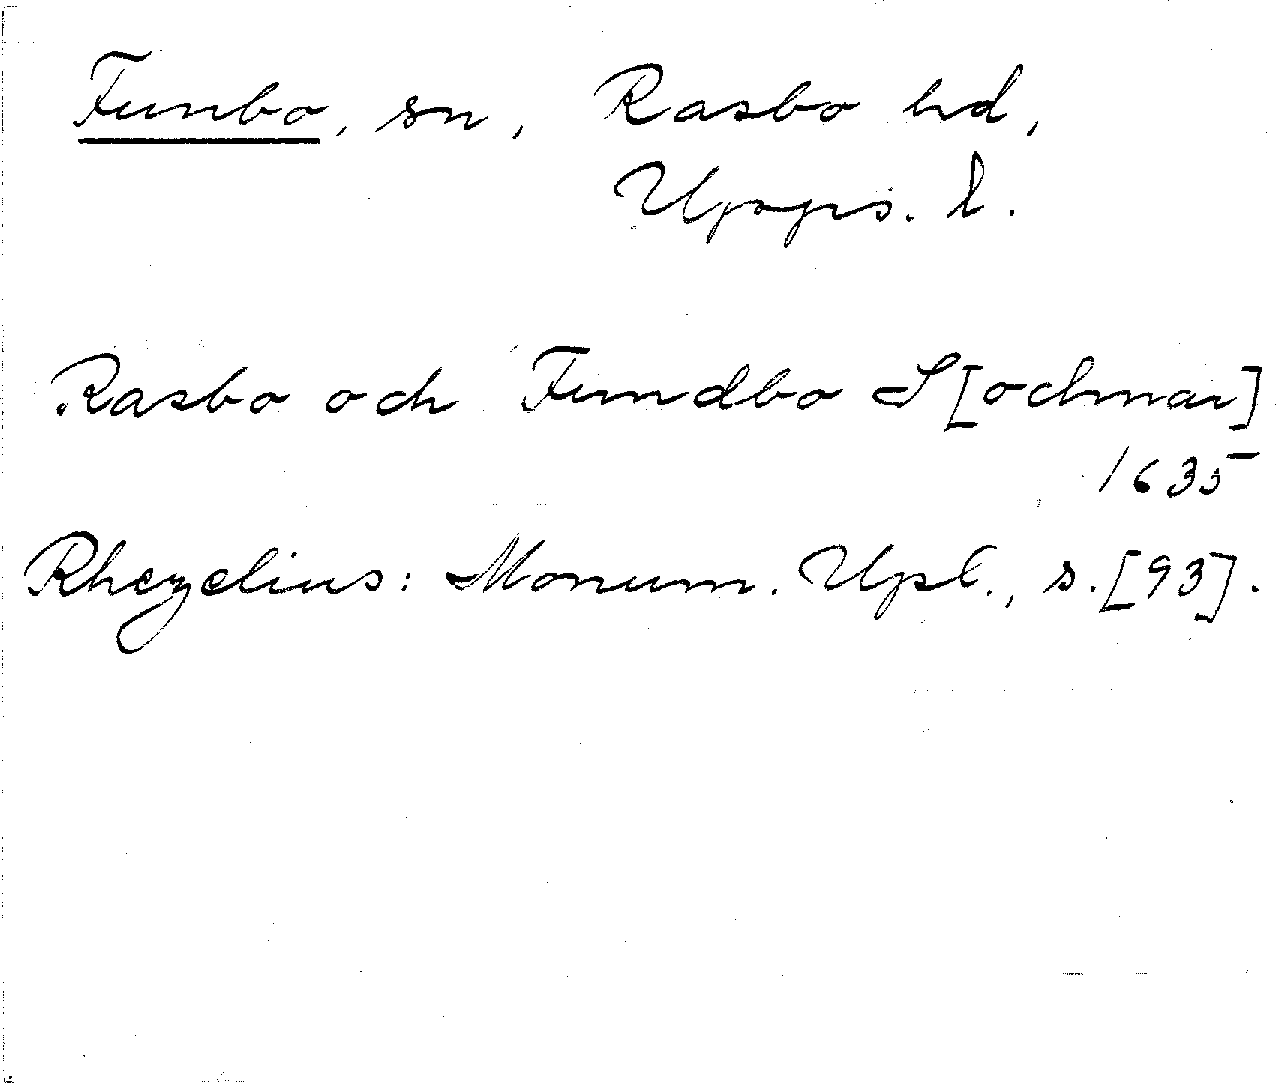 Funbo, sn, Rasbo hd,
Upps. l.
Rasbo och Fundbo S[ochnar]
1635
Rhezelius: Monum. Upl., s. [93].